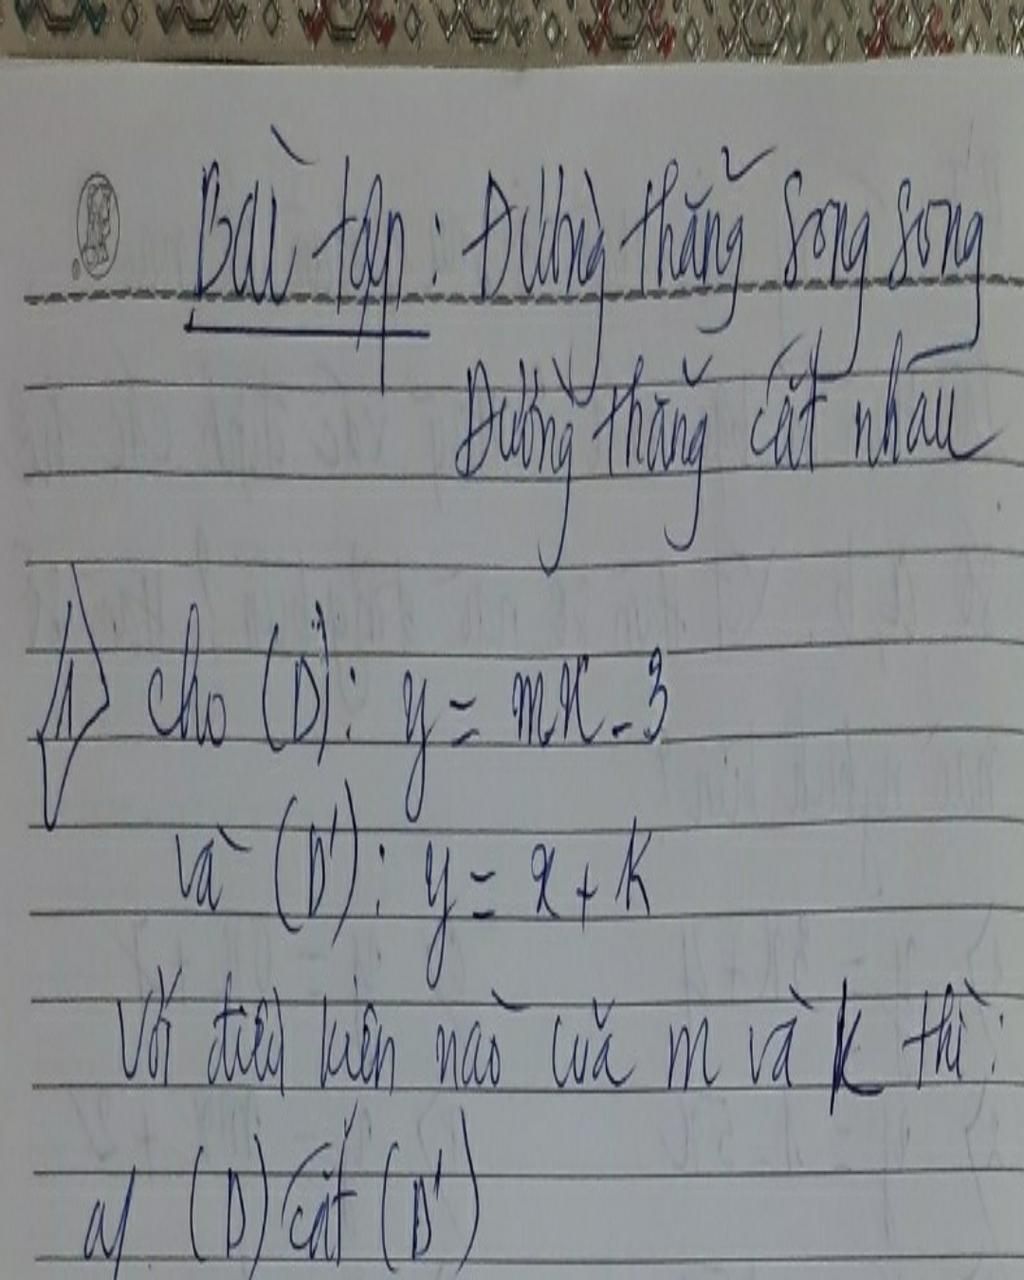 Bài tập: Đường thẳng song song
Đường thẳng cắt nhau
1) cho (D): y = mx - 3
và (D'): y = x + k
Với điều kiện nào của m và k thì:
a/ (D) cắt (D')